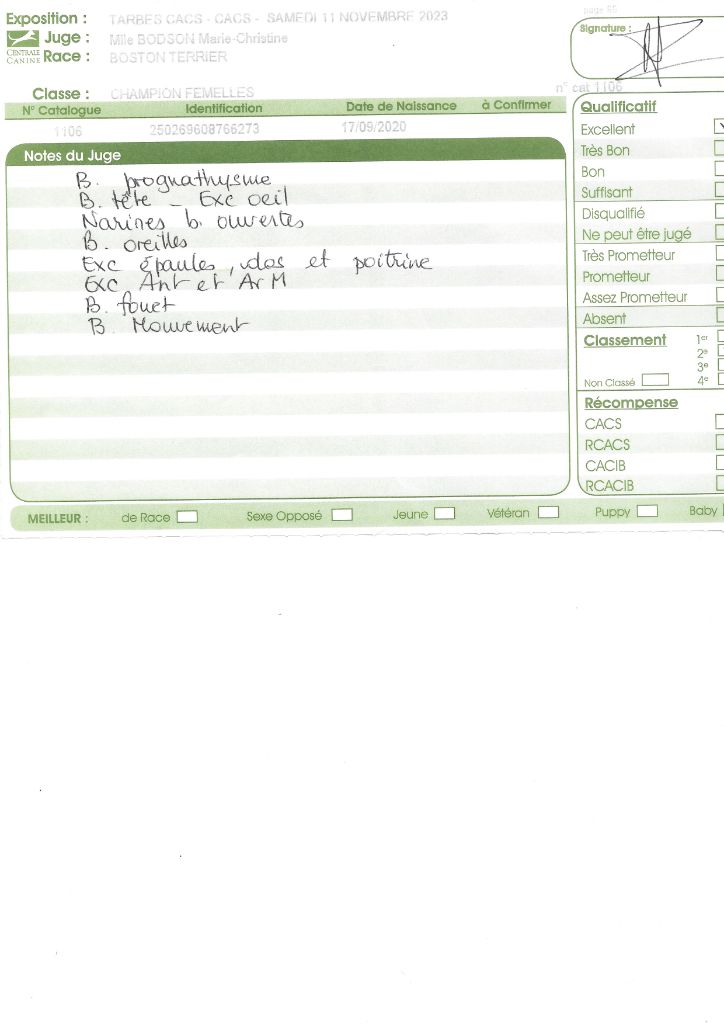 page 55
Exposition : TARBES CACS - CACS - SAMEDI 11 NOVEMBRE 2023
Signature :
CENTRALE CANINE
Juge : Mlle BODSON Marie-Christine
Race : BOSTON TERRIER
Classe : CHAMPION FEMELLES
n° cat 1106
N° Catalogue Identification Date de Naissance à Confirmer
1106 250269608766273 17/09/2020
Notes du Juge
B. prognathysme
B. tête - Exc oeil
Narines b. ouvertes
B. oreilles
Exc épaules, dos et poitrine
Exc Ant et Ar M
B. fouet
B. Mouvement
Qualificatif
Excellent
Très Bon
Bon
Suffisant
Disqualifié
Ne peut être jugé
Très Prometteur
Prometteur
Assez Prometteur
Absent
Classement 1er
2e
3e
Non Classé 4e
Récompense
CACS
RCACS
CACIB
RCACIB
MEILLEUR : de Race Sexe Opposé Jeune Vétéran Puppy Baby